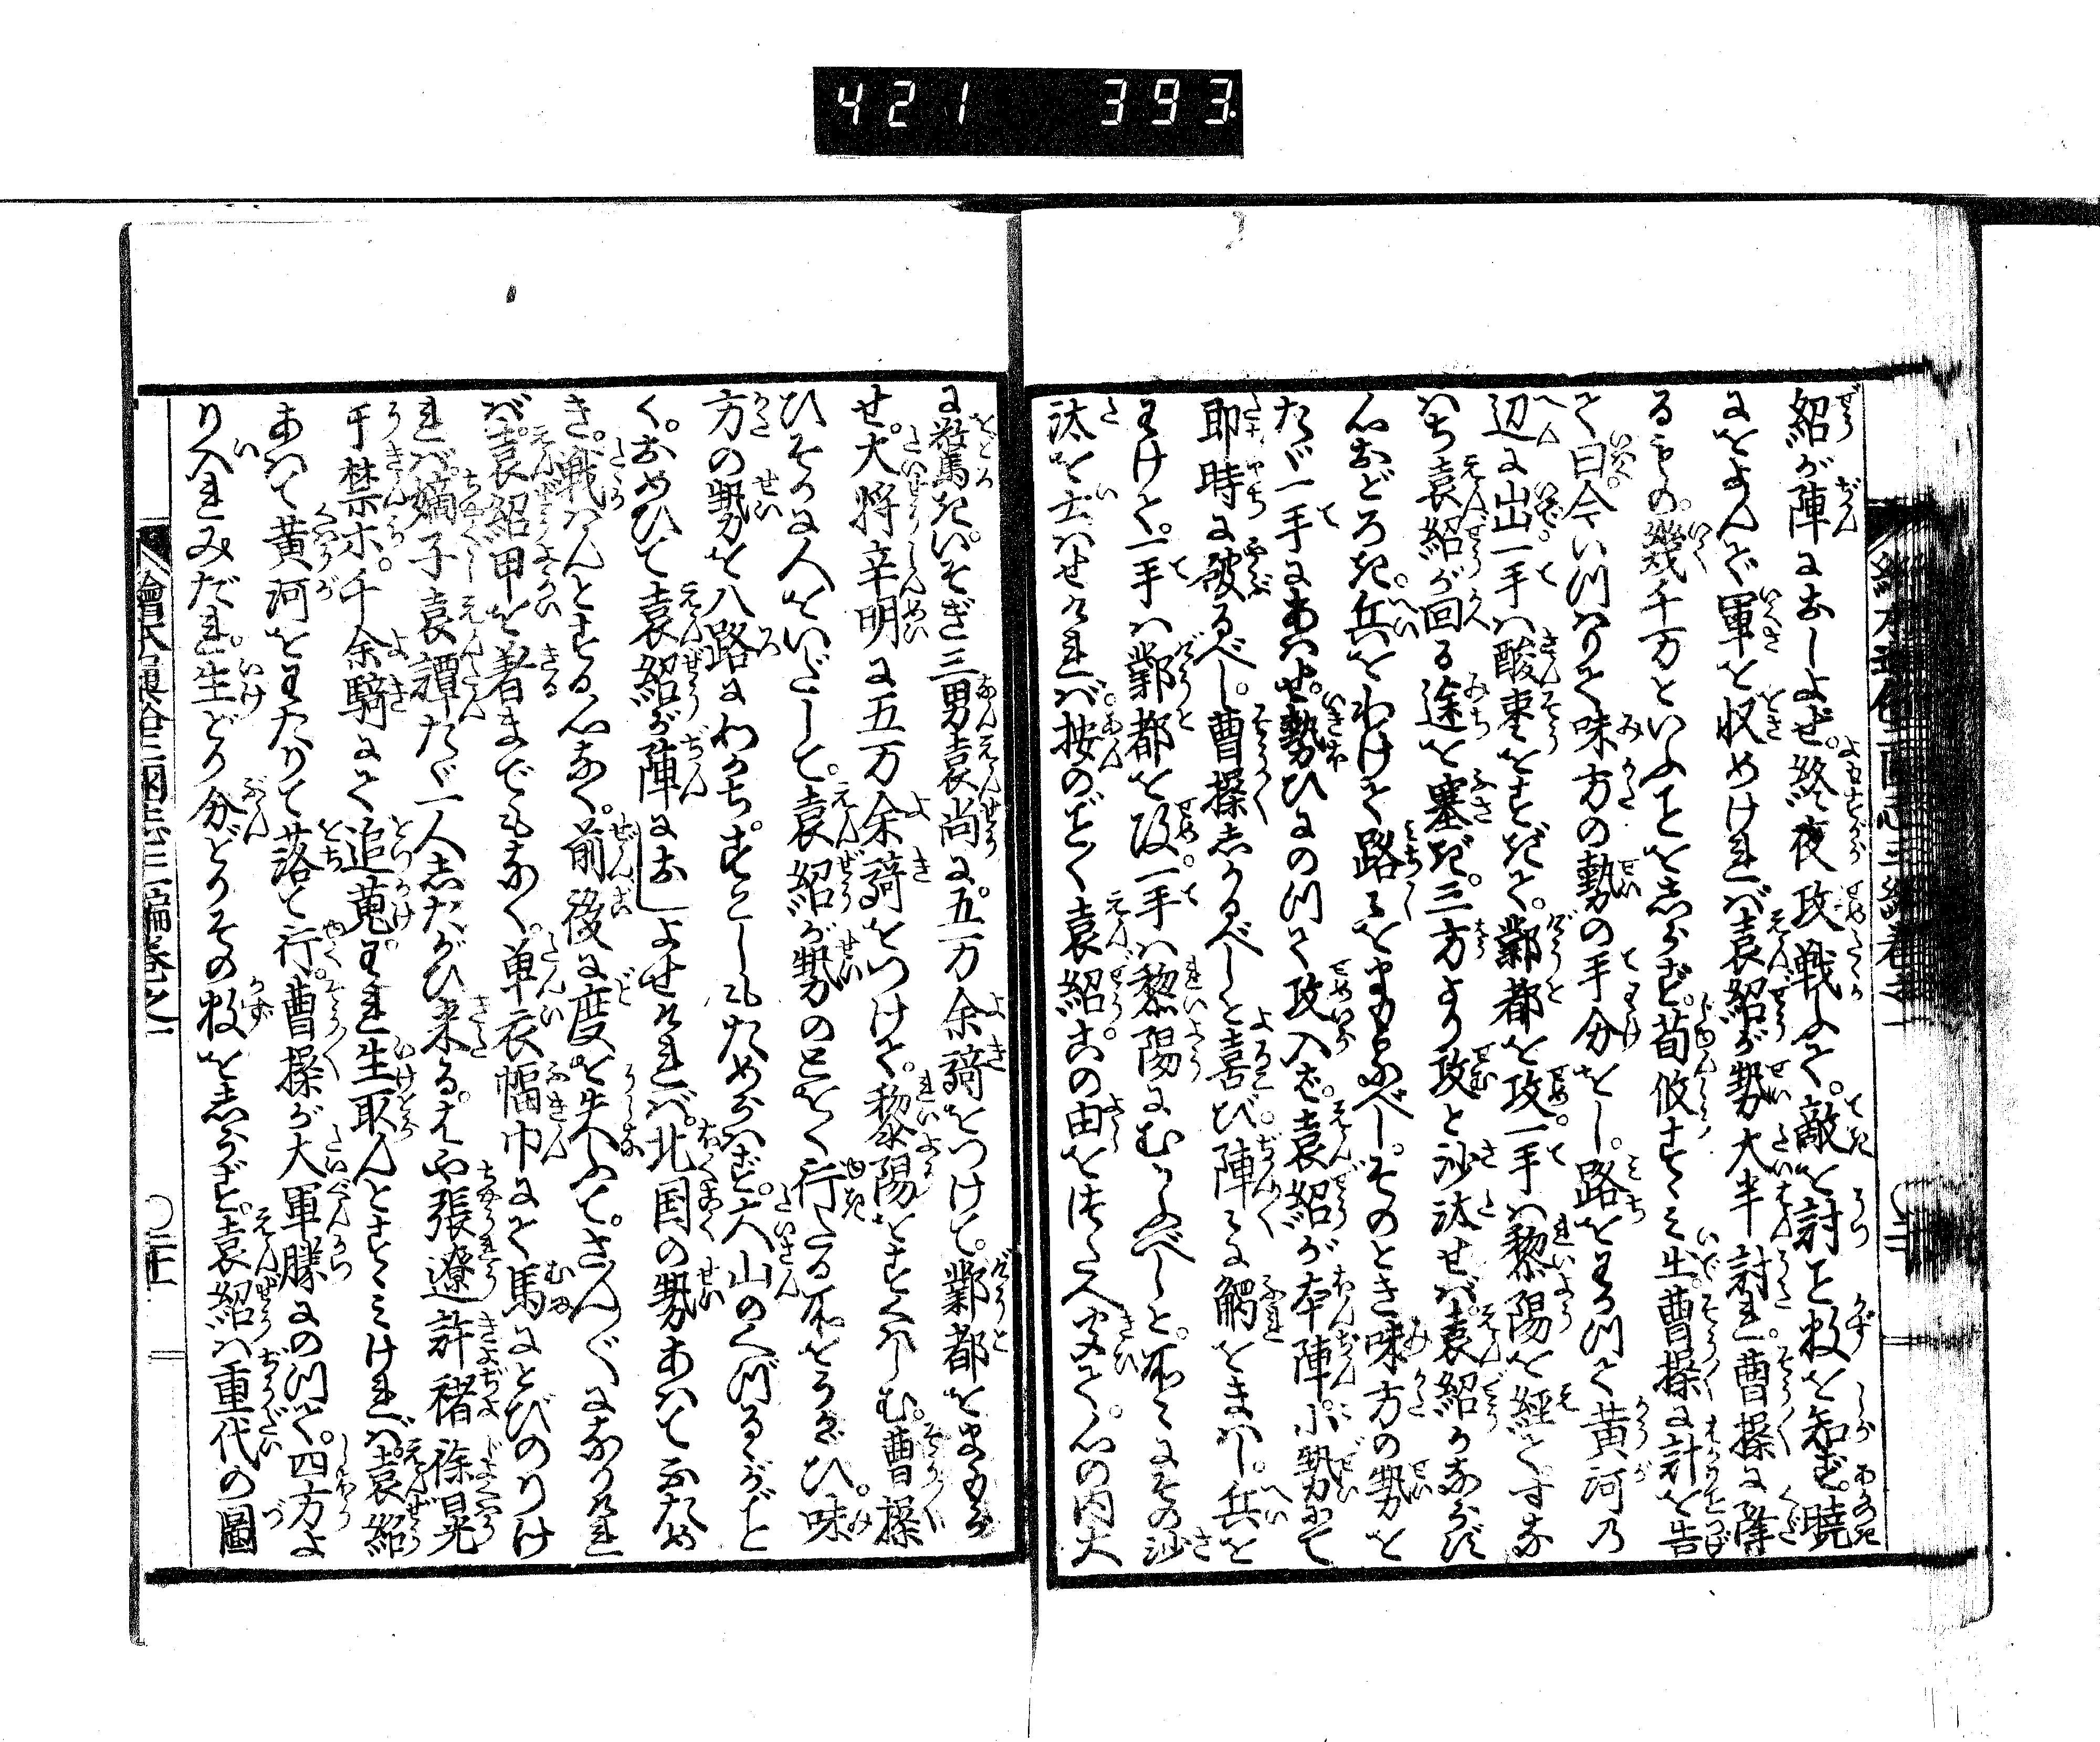 421 393
紹が陣におしよせ。終夜攻戦ふて。敵を討こと数を知ず。暁
にをよんで軍を収めければ袁紹が勢大半討れ。曹操に降
るもの。幾千万といふことをしらず。荀攸すゝみ出曹操に計を告
て曰今いつはりて味方の勢の手分をし。路をわかつて黄河の
辺に出一手は酸棗をすぎて。鄴都を攻。一手は黎陽を經てすな
はち袁紹が回る途を塞ぎ。三方より攻と沙汰せば。袁紹かならず
心おどろき。兵をわけて路々をまもるべし。そのとき味方の勢を
たゞ一手にあはせ。勢ひにのつて攻入ば。袁紹が本陣。小勢にて
即時に破るべし。曹操しかるべしと喜び。陣々に觸をまはし。兵を
わけて。一手は鄴都を攻。一手は黎陽にむかふべしと。所々にその沙
汰を云はせければ。按のごとく袁紹この由をつたへ聞て。心の内大
に驚き。いそぎ三男袁尚に。五万余騎をつけて。鄴都をまもら
せ。大将辛明に五万余騎をつけて。黎陽をすくはしむ。曹操
ひそかに人をいだして。袁紹が勢のとをく行たる所をうかゞひ。味
方の勢を八路にわかち。すこしもためらはず。大山のくづるゝごと
く。おめひて袁紹が陣におしよせければ。北国の勢あはておため
き。戦はんとする心なく。前後に度を失ふて。さん〴〵になりければ
ば。袁紹甲を著までもなく。単衣幅巾にて馬にとびのりけ
れば。嫡子袁譚たゞ一人したがひ来る。はや張遼許褚徐晃
于禁ホ。千余騎にて追蒐。われ生取んとすゝみければ。袁紹
あはて黄河をわたりて落て行。曹操が大軍勝にのつて。四方よ
り入れみだれ。生どり分どりその数をしらず。袁紹は重代の圖
繪本通俗三國志三編巻之一
〇二十